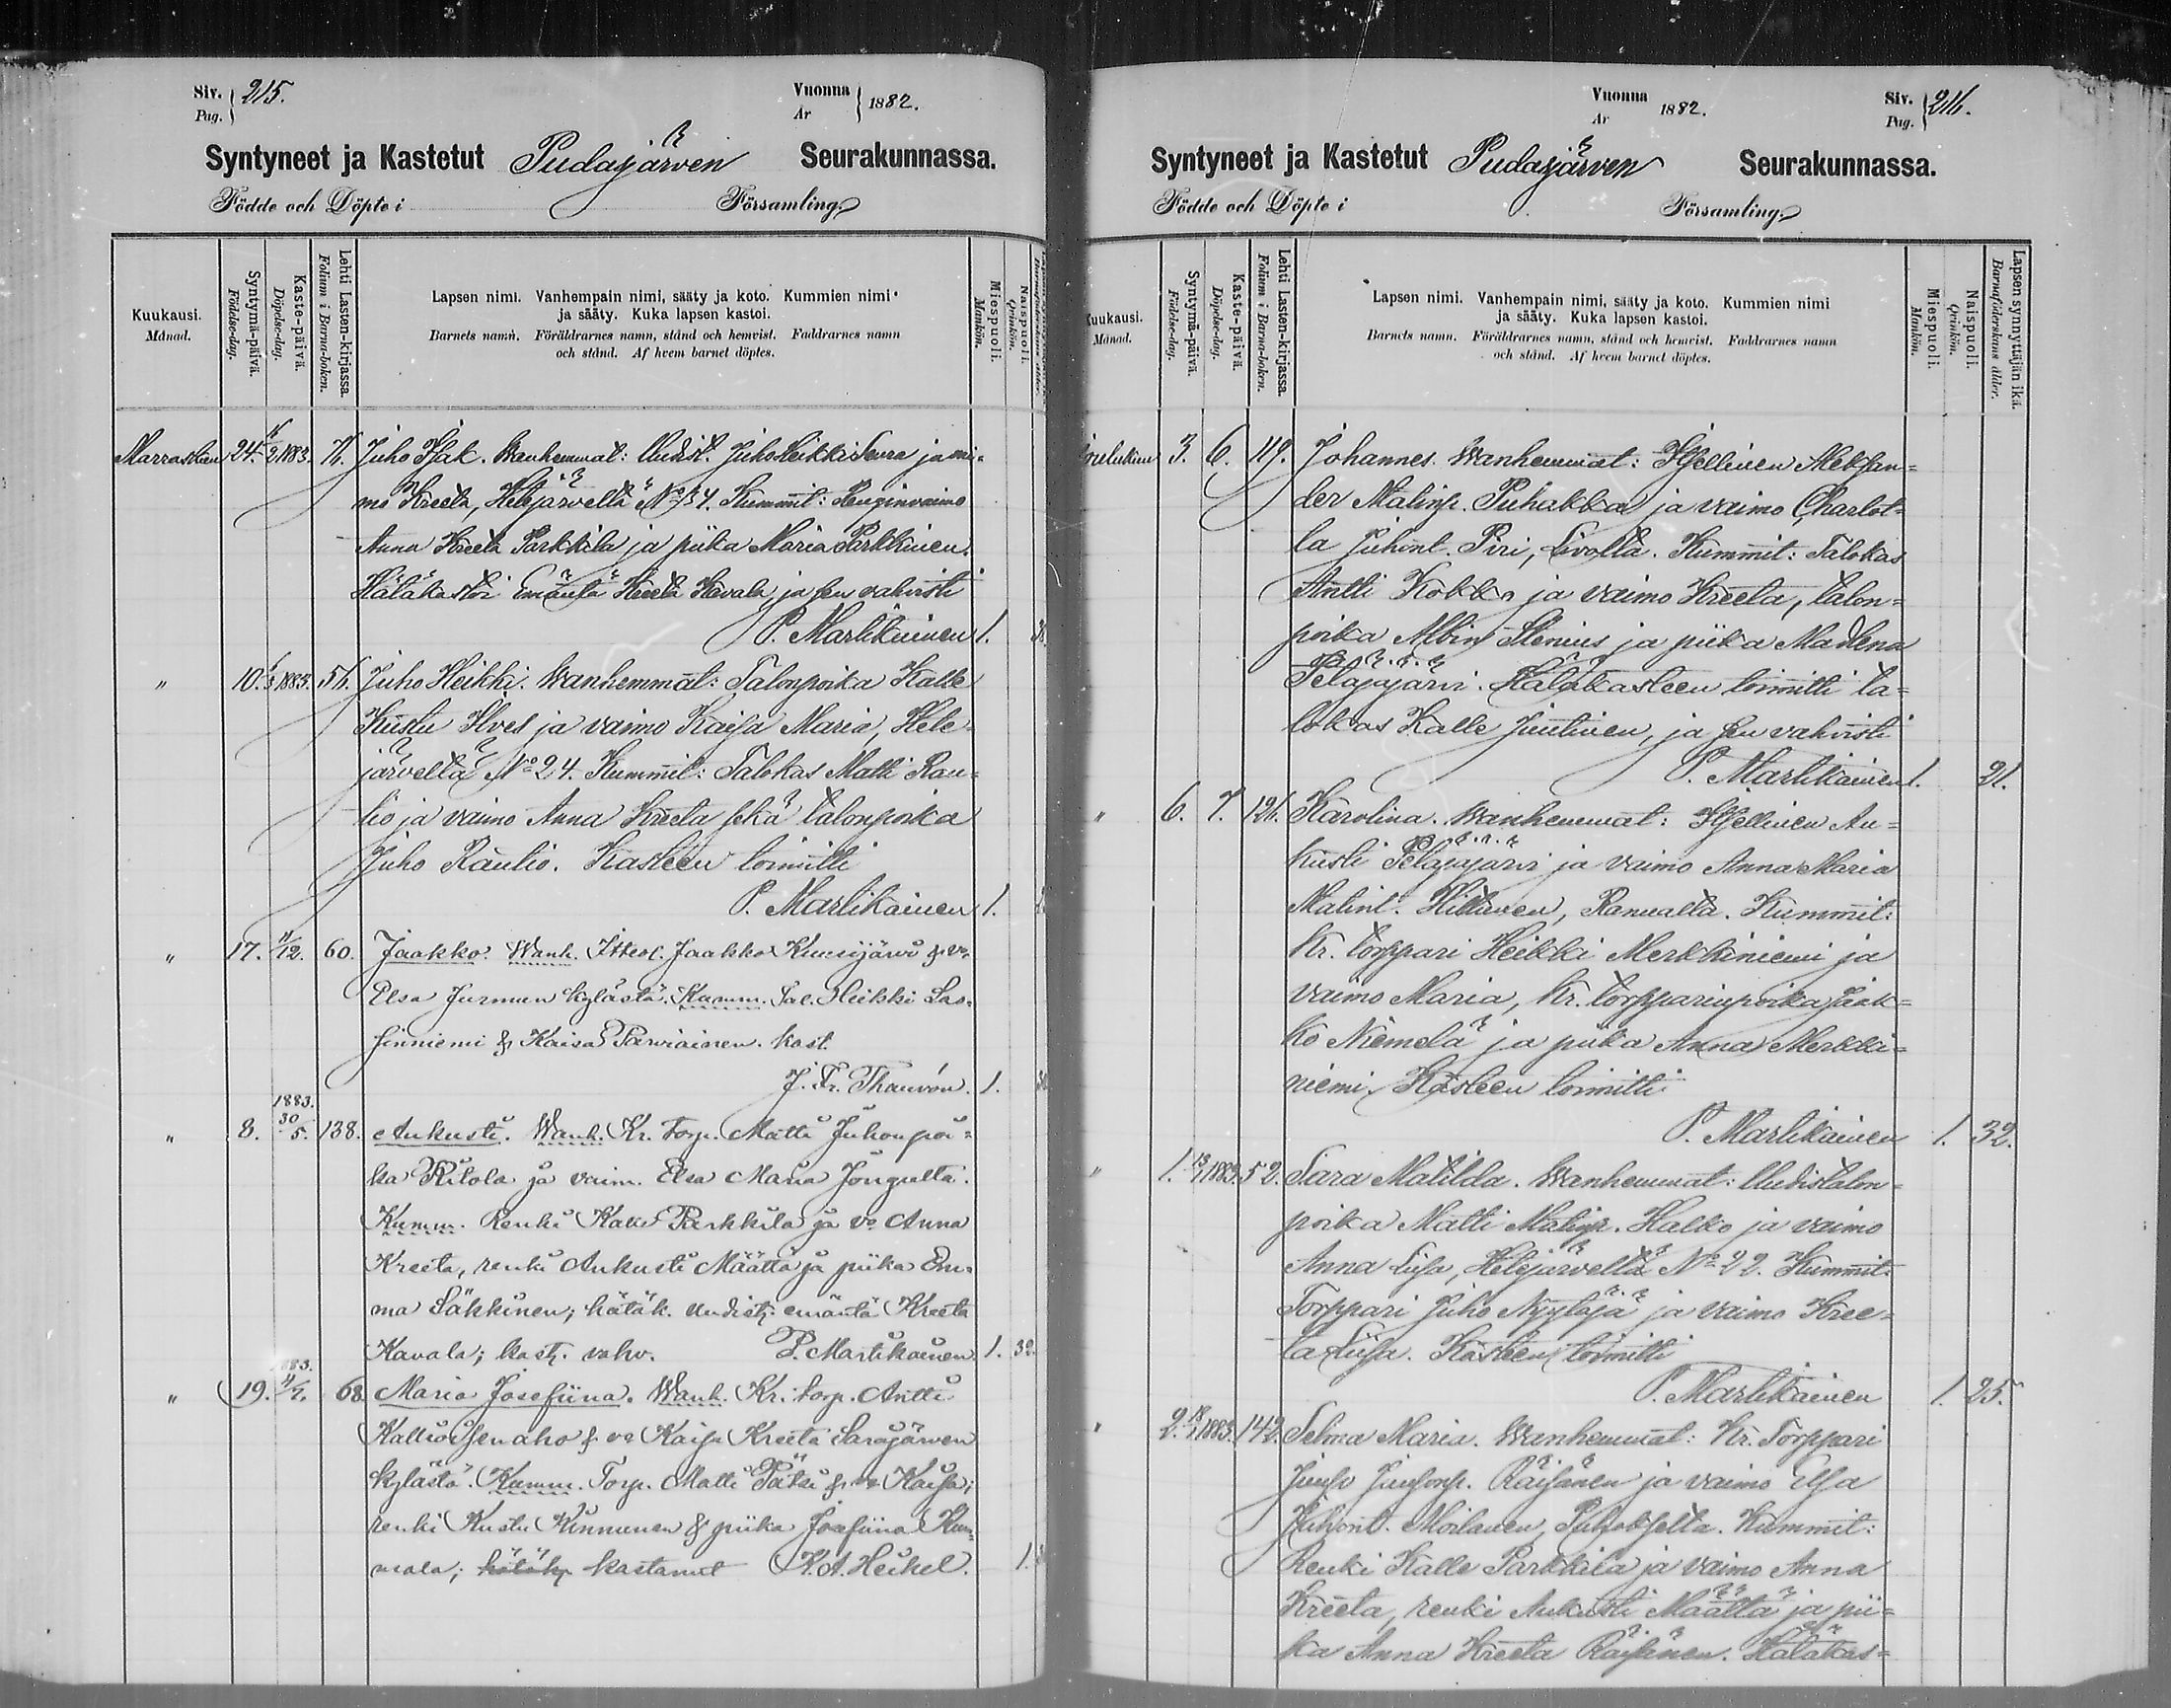 Siv. Pag. 215.
Vuonna År 1882.
Syntyneet ja Kastetut Pudasjärven Seurakunnassa.
Födde och Döpte i Församling.
Kuukausi. Månad.
Syntymä-päivä. Födelse-dag.
Kaste-päivä. Döpelse-dag.
Lehti Lasten-kirjassa. Folium i Barna-boken.
Lapsen nimi. Vanhempain nimi, sääty ja koto. Kummien nimi
ja sääty. Kuka lapsen kastoi.
Barnets namn. Föräldrarnes namn, stånd och hemvist. Faddrarnes namn
och stånd. Af hvem barnet döptes.
Miespuoli. Mankön.
Naispuoli. Qvinkön.
Marraskuu 24. 1883. Juho Isak. Wanhemmat: Uudist. Juho Heikki Seura ja vai=
mo Kreeta, Hetejärveltä No 34. Kummit: Renginvaimo
Anna Kreeta Parkkila ja piika Maria Parkkinen.
Hätäkastoi Emäntä Kreeta Kavala, ja sen vahvisti
P. Martikainen 1.
" 10. 1883. 56. Juho Heikki. Wanhemmat: Talonpoika Kalle
Kustu Ilves ja vaimo Kaisa Maria, Hete=
järveltä No 24. Kummit: Talokas Matti Rau=
tio ja vaimo Anna Kreeta sekä talonpoika
Juho Rautio. Kasteen toimitti
P. Martikainen 1.
" 17. 11/12. 60. Jaakko. Wanh. Itteol. Jaakko Kuusijärvi & vo
Elsa Jurmun kylästä. Kumm. Tal. Heikki Sas=
sinniemi & Kaisa Parviainen. kast.
J. Fr. Thauvón. 1.
" 8. 1883. 30/5. 138. Aukusti. Wanh. Kr. Torp. Matti Juhonpoi=
ka Ritola ja vaim. Elsa Maria Jongulta.
Kumm. Renki Kalle Parkkila ja vo Anna
Kreeta, renki Aukusti Määttä ja piika Em=
ma Säkkinen; hätäk. uudist. emäntä Kreeta
Kavala; kast. vahv. P. Martikainen. 1. 32.
" 19. 1883. 68. Maria Josefiina. Wanh. Kr. torp. Antti
Kalliosenaho & vo Kaisa Kreeta Sarajärven
kylästä. Kumm. Torp. Matti Pätsi & vo Kaisa;
renki Kustu Kinnunen & piika Josefiina Kum=
mala; hätäk. kastanut K. A. Heikel. 1.
Vuonna År 1882.
Siv. Pag. 216.
Syntyneet ja Kastetut Pudasjärven Seurakunnassa.
Födde och Döpte i Församling.
Kuukausi. Månad.
Syntymä-päivä. Födelse-dag.
Kaste-päivä. Döpelse-dag.
Lehti Lasten-kirjassa. Folium i Barna-boken.
Lapsen nimi. Vanhempain nimi, sääty ja koto. Kummien nimi
ja sääty. Kuka lapsen kastoi.
Barnets namn. Föräldrarnes namn, stånd och hemvist. Faddrarnes namn
och stånd. Af hvem barnet döptes.
Miespuoli. Mankön.
Naispuoli. Qvinkön.
Lapsen synnyttäjän ikä. Barnaföderskans ålder.
Joulukuu 3. 6. 119. Johannes. Wanhemmat: Itsellinen Aleksan=
der Matinp. Puhakka ja vaimo Charlot=
ta Juhont. Piri, Livolta. Kummit: Talokas
Antti Kokko ja vaimo Kreeta, talon=
poika Albin Stenius ja piika Madlena
Pelajajärvi. Hätäkasteen toimitti ta=
lokas Kalle Juutinen, ja sen vahvisti
P. Martikainen 1. 21.
" 6. 7. 121. Karolina. Wanhemmat: Itsellinen Au=
kusti Pelajajärvi ja vaimo Anna Maria
Matint. Hiltunen, Ranualta. Kummit:
Kr. torppari Heikki Merkkiniemi ja
vaimo Maria, kr. torpparinpoika Jaak=
ko Niemelä ja piika Anna Merkki=
niemi. Kasteen toimitti
P. Martikainen 1. 32.
" 1. 1883. 52. Sara Matilda. Wanhemmat: Uudistalon=
poika Matti Matinp. Halko ja vaimo
Anna Liisa, Hetejärveltä No 22. Kummit:
Torppari Juho Nyyläjä ja vaimo Kree=
ta Liisa. Kasteen toimitti
P. Martikainen 1. 25.
" 2. 1883. 142. Selma Maria. Wanhemmat: Kr. Torppari
Juuso Juusonp. Räisänen ja vaimo Elsa
Juhont. Moilanen, Puhokselta. Kummit:
Renki Kalle Parkkila ja vaimo Anna
Kreeta, renki Aukusti Määttä ja pii=
ka Anna Kreeta Räisänen. Hätäkas=